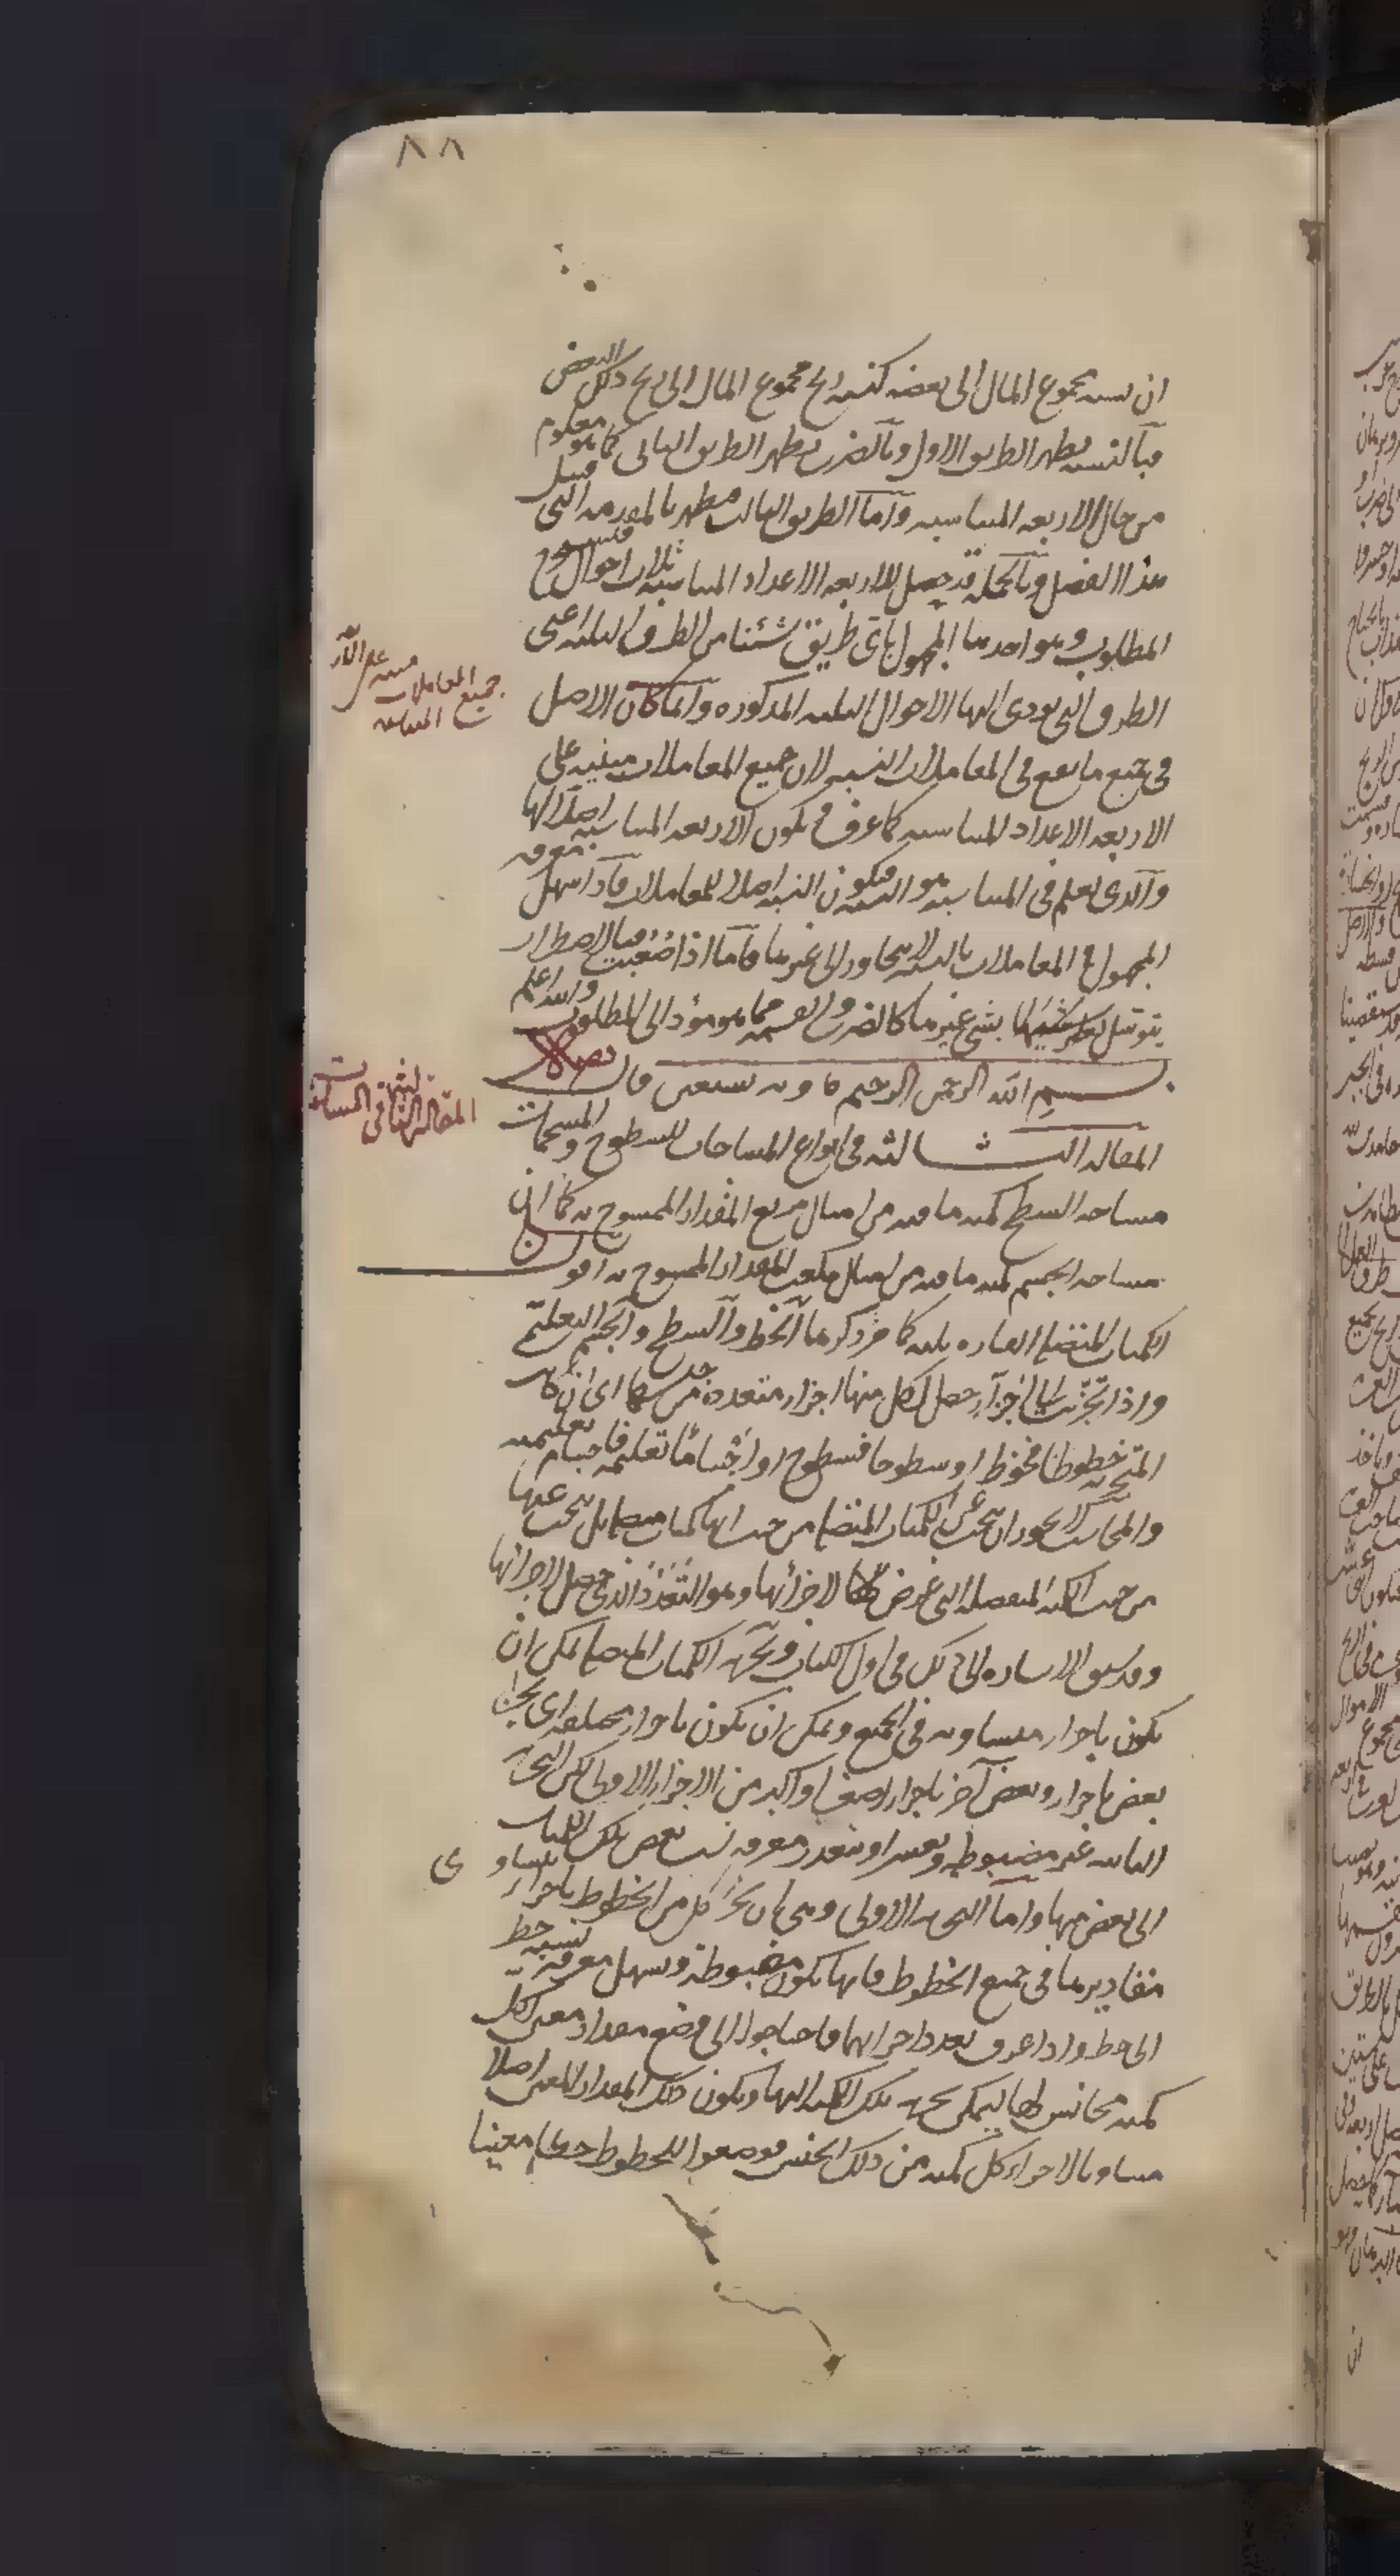 ٨٨
ان نسبه مجموع المال الى بعضه كنسبه ربح مجموع المال الى ربح ذلك البعض
فبالنسبه يظهر الطريق الاول وبالضرب يظهر الطريق الثانى كما هو معلوم
من حال الاربعه المتناسبه واما الطريق الثالث فيظهر بالمقدمه التى قبيل
هذا الفصل وبالجمله قد يحصل للاربعه الاعداد المتناسبه ثلاث احوال
المطلوب وهو احدها المجهول باى طريق شئنا من الطرق الثلثه اعنى
الطرق التى تودى اليها الاحوال الثلثه المذكوره وانما كان الاصل
فى جميع ما يقع فى المعاملات النسبه لان جميع المعاملات مبنيه على
الاربعه الاعداد المتناسبه كما عرف فح تكون الاربعه المتناسبه اصلا لها
والذى يعلم فى المتناسبه هو النسبه فتكون النسبه اصلا للمعاملات فاذا سهل معرفه
المجهول فى المعاملات بالنسبه لا يتجاوز الى غيرها فاما اذا صعبت فبالاضطرار
يتوسل بشى غيرها كالضرب والقسمه مما هو مؤد الى المطلوب والله اعلم
بسم الله الرحمن الرحيم وبه نستعين قال
المقاله الثالثه فى انواع المساحات للسطوح والمجسمات
مساحه السطح كميه ما فيه من امثال مربع المقدار الممسوح به كما ان
مساحه الجسم كميه ما فيه من امثال مكعب المقدار الممسوح به اقول
الكميات المتصله القاره ثلثه كما مر ذكرها الخط والسطح والجسم التعليمى
واذا تجزت الى اجزاء حصل لكل منها اجزاء متعدده من جنسها اى ان كانت
المتجزيه خطوطا فخطوط او سطوحا فسطوح او اجساما تعليميه فاجسام تعليميه
والمحاسب لا يجوز ان يبحث عن الكميات المتصله من حيث انها كميات متصله بل يبحث عنها
من حيث الكميه المنفصله التى تعرض لاجزائها وهو التعدد الذى حصل لاجزائها
وقد سبق الاشاره الى ذلك فى اول الكتاب وتجزيه الكميات المتصله يمكن ان
يكون باجزاء متساويه فى الجميع ويمكن ان يكون باجزاء مختلفه اى يجزا
بعض باجزاء وبعض آخر باجزاء اصغر او اكبر من الاجزاء الاولى لكن التجزيه
الثانيه غير مضبوطه ويعسر او يتعذر معرفه نسب بعض تلك الكميات
الى بعض منها واما التجزيه الاولى وهى ان يجزا كل من الخطوط باجزاء يتساوى
مقاديرها فى جميع الخطوط فانها تكون مضبوطه ويسهل معرفه نسبه خط
الى خط واذا عرف تعدد اجزائهما فاحتاجوا الى وضع مقدار معين لكل
كميه مجانس لها ليمكن تجزيه تلك الكميه اليها ويكون ذلك المقدار المعين اصلا
مساويا لاجزاء كل كميه من ذلك الجنس فوضعوا للخطوط خطا معينا
جميع المعاملات مبنيه على الاربعه المتناسبه
المقاله الثالثه فى المساحات